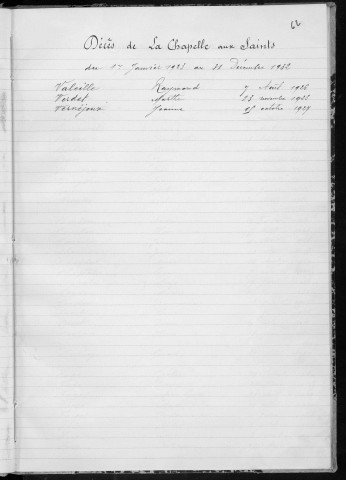 62
Décès de La Chapelle aux Saints
du 1er Janvier 1923 au 31 Décembre 1932
Valeille Raymond 7 Août 1926
Verdet Marthe 28 novembre
Vernéjoux Jeanne 25 octobre 1927